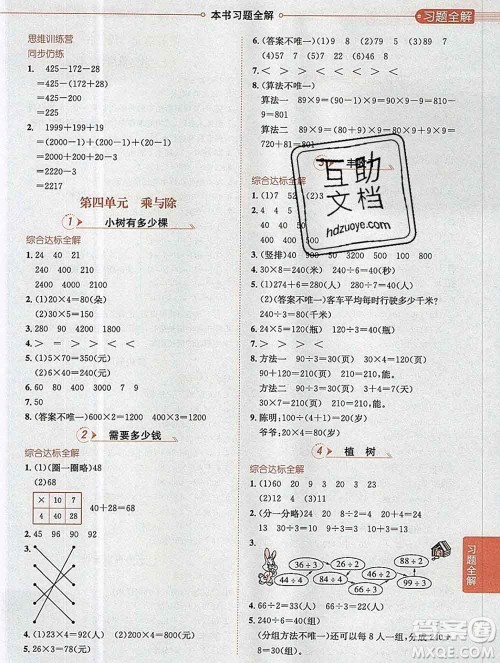 本书习题全解
习题全解
思维训练营
同步仿练
1. 425-172-28
=425-(172+28)
=425-200
=225
2. 1999+199+19
=(2000-1)+(200-1)+(20-1)
=2000+200+20-(1+1+1)
=2220-3
=2217
第四单元 乘与除
1 小树有多少棵
综合达标全解
1. 24 40 21
240 400 210
2. (1)20×4=80(朵)
(2)30×5=150(朵)
3. 280 900 4200 90
4. > = < =
5. (1)5×70=350(元)
(2)400×2=800(元)
6. 40 800 2400 4000
7. < < > =
8. (答案不唯一)600×2=1200 400×3=1200
2 需要多少钱
综合达标全解
1. (1)(圈一圈略)48
(2)
× 10 7
4 40 28
40+28=68
2. 45 96 90 92
3.
4. (1)20×6=120(元)
(2)22×4=88(元)
5. 26×3=78(元)
6. (答案不唯一)(1)9 8 (2)5 2 (3)7 9
(4)7 7
7. < > > > < >
8. (算法不唯一)
算法一 89×9=(90-1)×9=90×9-1×
9=801
算法二 89×9=(80+9)×9=80×9+9×9=
720+81=801
综合达标全解
2. 4 4 5
3. (竖排)
4. 30×8=240(米)
5. (1)274+6=280(人)
(2)(答案不唯一)客车平均每时行驶多少千米?
240÷3=80(千米)
6. 24×5=120(瓶) 120÷3=40(瓶)
7. > = < < > =
8. 方法一 90÷3=30(页) 30×7=210(页)
210=210,能。
方法二 210÷7=30(页) 90÷3=30(页)
30页=30页,能。
9. 陈明:
爷爷:400÷2=200(米)
4 植 树
综合达标全解
1. (1)60 20 3 23
(2)12 4 30 34
2. (分一分略)(1)24 (2)13
3.
36÷3 66÷3 48÷4 88÷4
44÷4 24÷2 33÷3 22÷2
4. 66÷2=33(人) 66÷3=22(人)
5. 240÷6=40(组)
习题全解
互助
文档
hdzuoye.com
答案圈
MXQE.COM